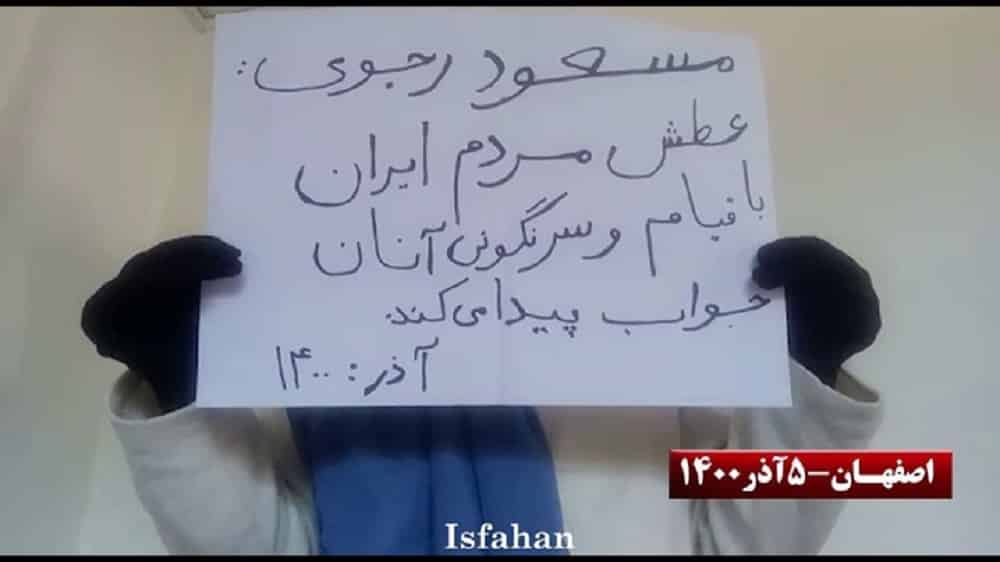 مسعود رجوی:
عطش مردم ایران
با قیام و سرنگونی آنان
جواب پیدا می‌کند.
آذر: ۱۴۰۰
اصفهان-۵آذر۱۴۰۰
Isfahan